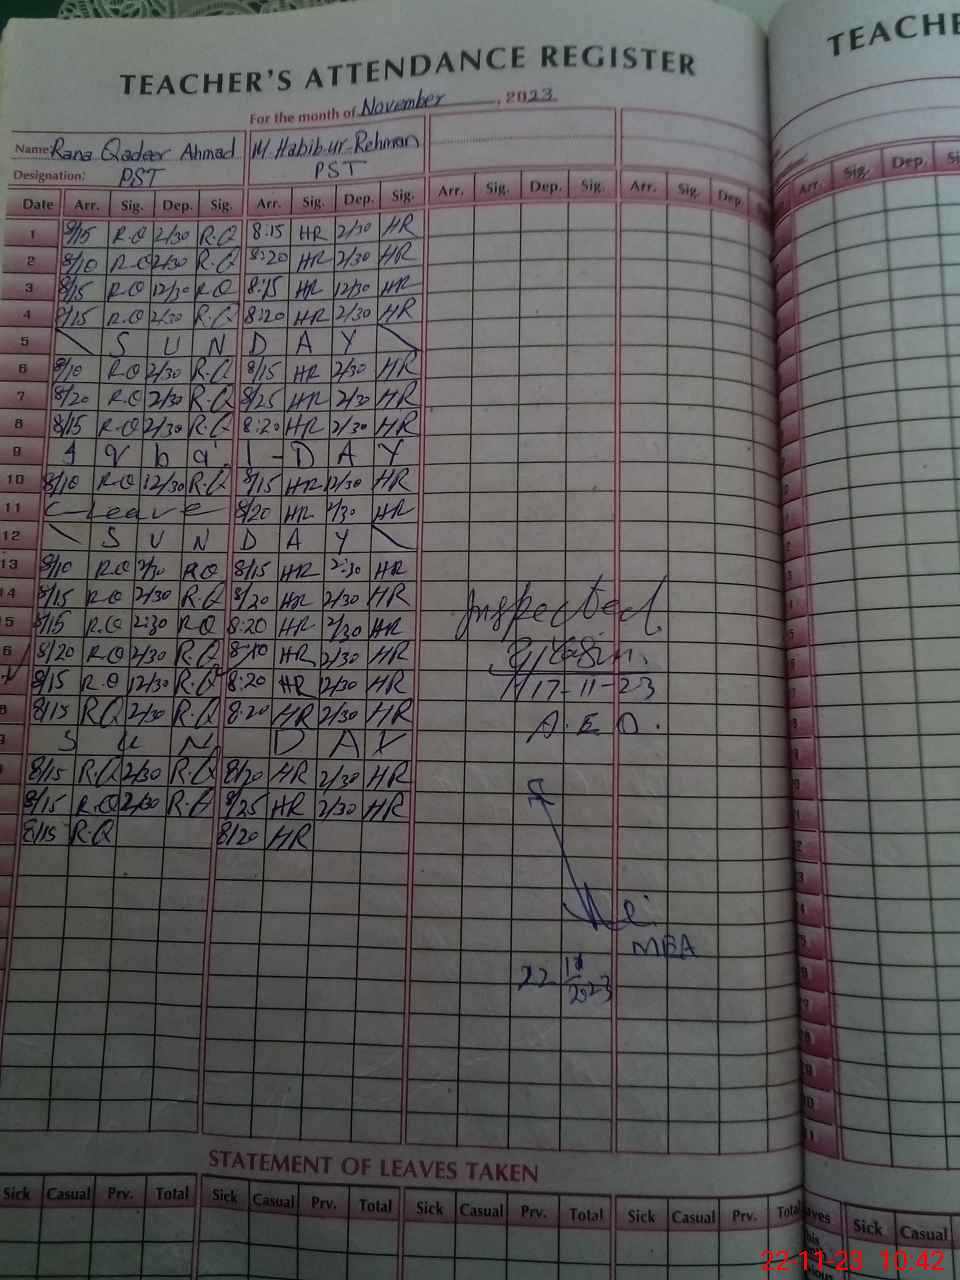 TEACHER'S ATTENDANCE REGISTER
TEACHE
For the month of November, 2023
Name: Rana Qadeer Ahmad M. Habib.ur-Rehman
Designation: PST PST
Date Arr. Sig. Dep. Sig. Arr. Sig. Dep. Sig. Arr. Sig. Dep. Sig. Arr. Sig. Dep. Arr. Sig. Dep.
1 8/15 R.Q 2/30 R.Q 8:15 HR 2/30 HR
2 8/10 R.Q 2/30 R.Q 8:20 HR 2/30 HR
3 8/15 R.Q 12/30 R.Q 8:15 HR 12/30 HR
4 8/15 R.Q 2/30 R.Q 8:20 HR 2/30 HR
5 S U N D A Y
6 8/10 R.Q 2/30 R.Q 8/15 HR 2/30 HR
7 8/20 R.Q 2/30 R.Q 8/25 HR 2/30 HR
8 8/15 R.Q 2/30 R.Q 8:20 HR 2/30 HR
9 I q b a l - D A Y
10 8/10 R.Q 12/30 R.Q 8/15 HR 12/30 HR
11 C-Leave 8/20 HR 2/30 HR
12 S U N D A Y
13 8/10 R.Q R.Q 8/15 HR 2:30 HR
14 8/15 R.Q 2/30 R.Q 8/20 HR 2/30 HR
5 8/15 R.Q 2:30 R.Q 8:20 HR 2/30 HR
6 8/20 R.Q 2/30 R.Q 8:10 HR 2/30 HR
8/15 R.Q 12/30 R.Q 8:20 HR 12/30 HR
8 8/15 R.Q 2/30 R.Q 8:20 HR 2/30 HR
S U N D A Y
8/15 R.Q 2/30 R.Q 8/20 HR 2/30 HR
8/15 R.Q 2/30 R.Q 8/25 HR 2/30 HR
8/15 R.Q 8/20 HR
Inspected
17-11-23
A.E.O.
MEA
22 11/2023
STATEMENT OF LEAVES TAKEN
Sick Casual Prv. Total Sick Casual Prv. Total Sick Casual Prv. Total Sick Casual Prv. Total Sick Casual
22-11-23 10:42